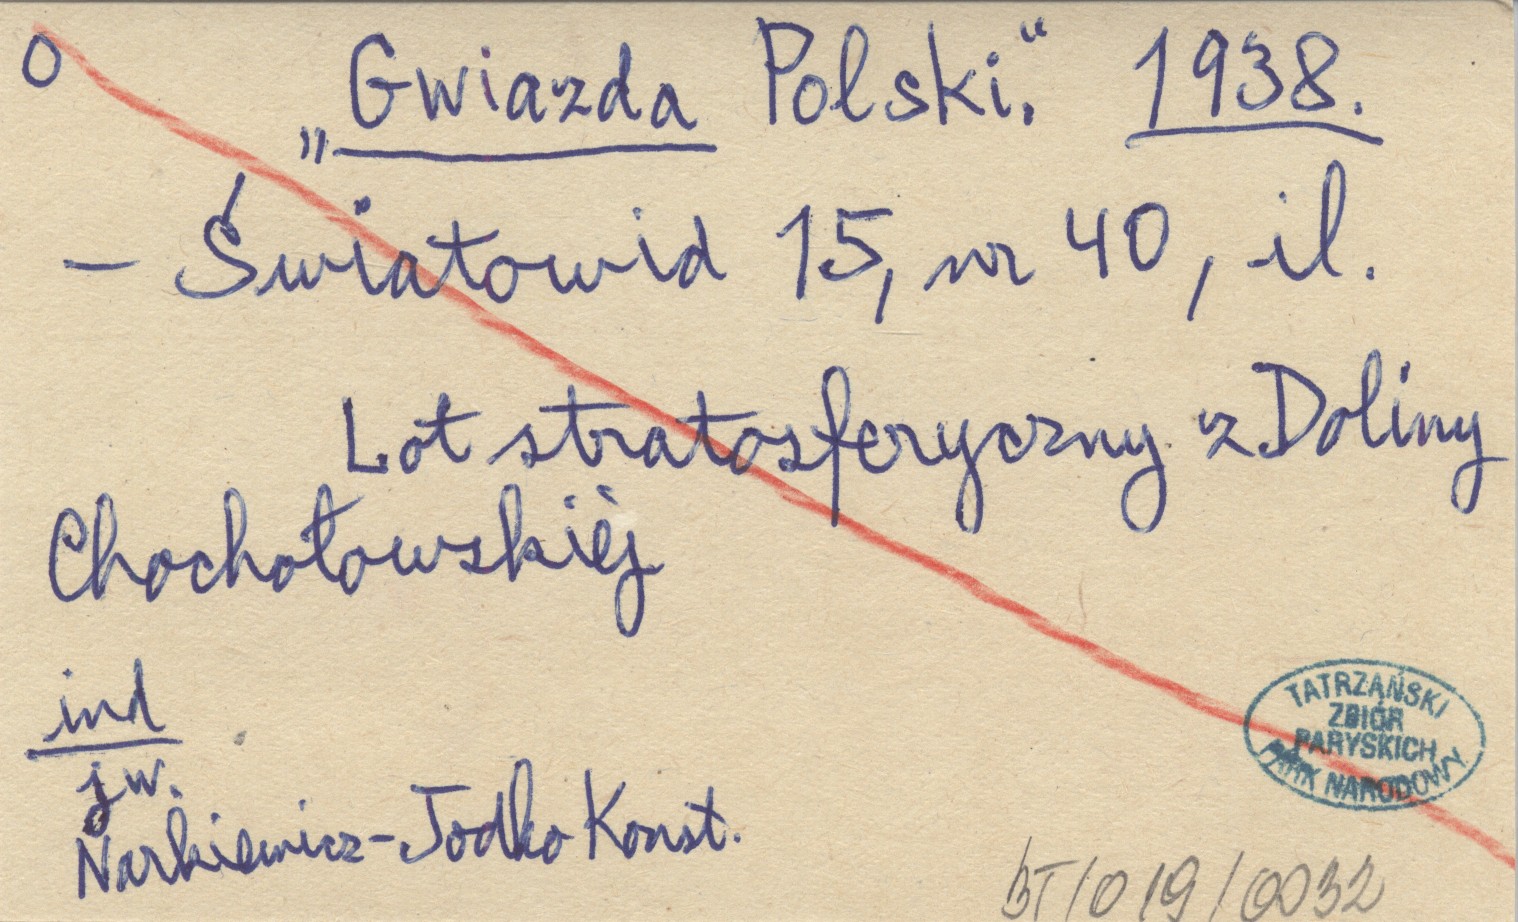 O
„Gwiazda Polski.“ 1938.
- Światowid 15, nr 40, il.
Lot stratosferyczny z Doliny
Chochołowskiej
ind
jw.
Narkiewicz-Jodko Konst.
TATRZAŃSKI
ZBIÓR
PARYSKICH
PARK NARODOWY
BT/019/0032